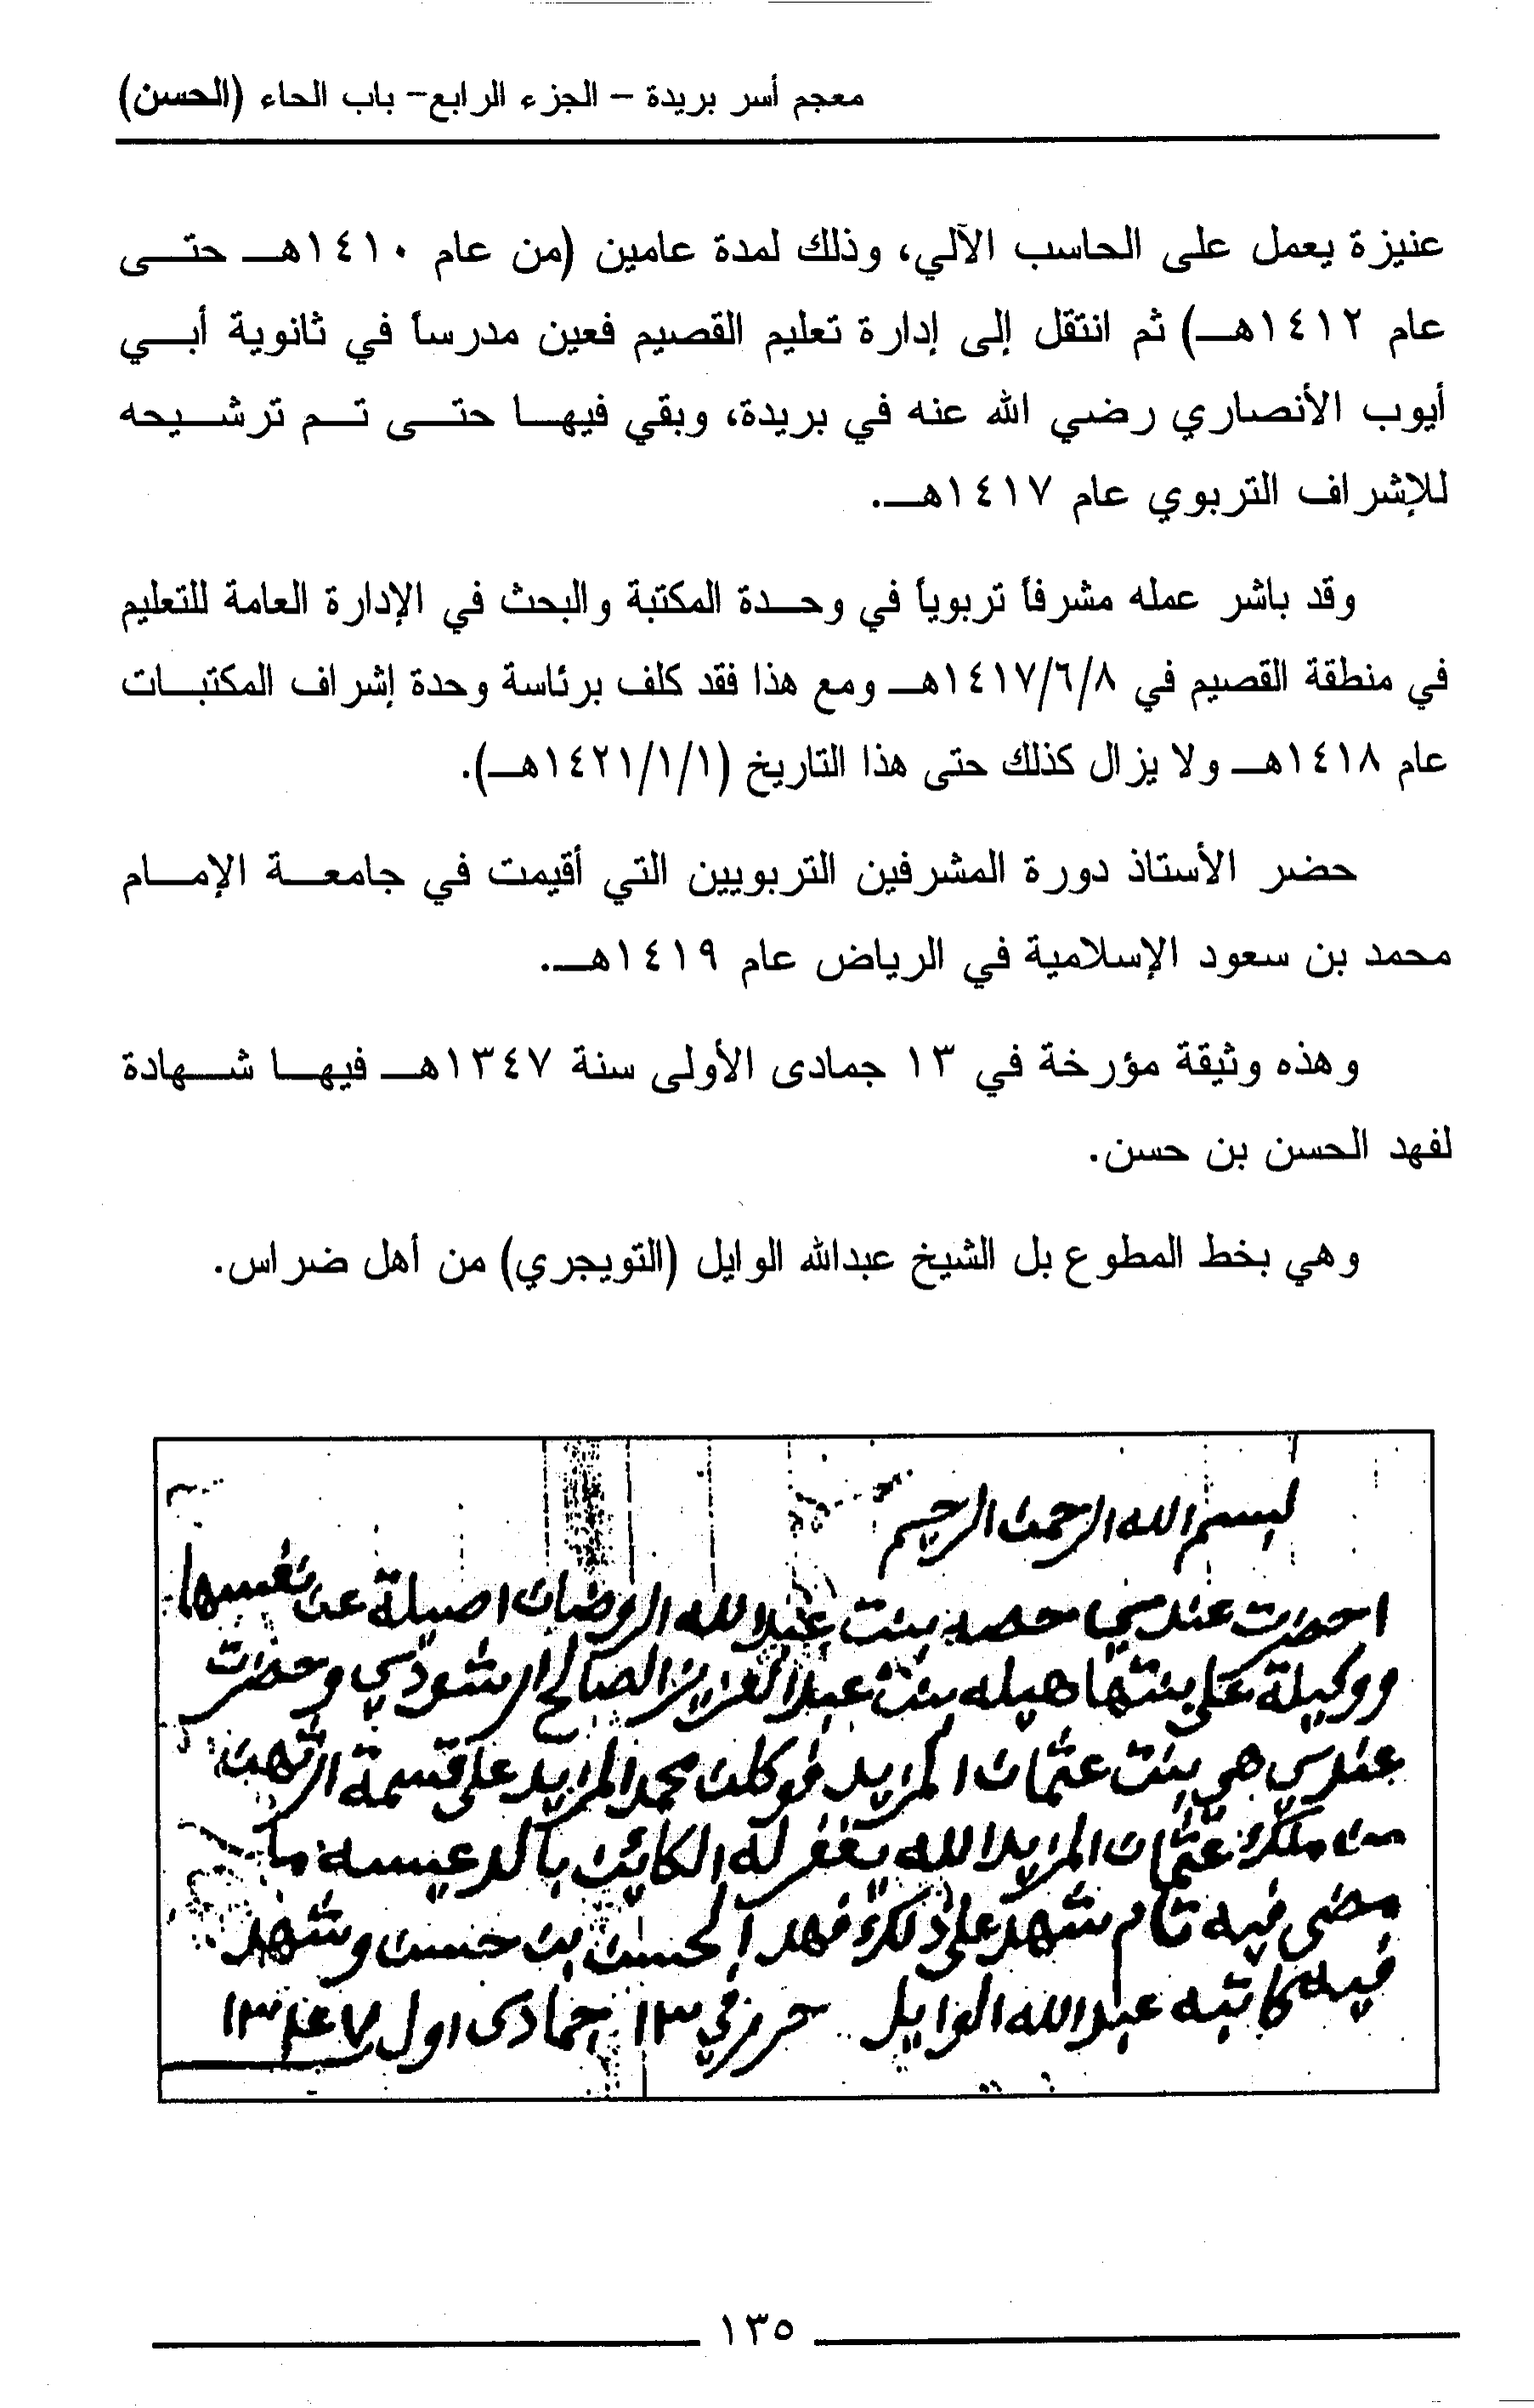 معجم أسر بريدة – الجزء الرابع– باب الحاء (الحسن)
عنيزة يعمل على الحاسب الآلي، وذلك لمدة عامين (من عام ١٤١٠هـ حتى
عام ١٤١٢هـ) ثم انتقل إلى إدارة تعليم القصيم فعين مدرساً في ثانوية أبي
أيوب الأنصاري رضي الله عنه في بريدة، وبقي فيها حتى تم ترشيحه
للإشراف التربوي عام ١٤١٧هـ.
وقد باشر عمله مشرفاً تربوياً في وحدة المكتبة والبحث في الإدارة العامة للتعليم
في منطقة القصيم في ١٤١٧/٦/٨هـ ومع هذا فقد كلف برئاسة وحدة إشراف المكتبات
عام ١٤١٨هـ ولا يزال كذلك حتى هذا التاريخ (١٤٢١/١/١هـ).
حضر الأستاذ دورة المشرفين التربويين التي أقيمت في جامعة الإمام
محمد بن سعود الإسلامية في الرياض عام ١٤١٩هـ.
وهذه وثيقة مؤرخة في ١٣ جمادى الأولى سنة ١٣٤٧هـ فيها شهادة
لفهد الحسن بن حسن.
وهي بخط المطوع بل الشيخ عبدالله الوايل (التويجري) من أهل ضراس.
بسم الله الرحمن الرحيم
احضرت عندي حصه بنت عبدالله الروضان اصيلة عن نفسها
ووكيلة على بنتها هيله بنت عبدالعزيز الصالح الرشودي وحضرت
عندي هي بنت عثمان المزيد فوكلت محمد المزيد على قسمة
من ملك عثمان المزيد الله يغفر له الكائن بالدعيسه ما
مضى فيه تام شهد على ذلك فهد الحسن بن حسن وشهد
فيه كاتبه عبدالله الوايل حرر في ١٣ جمادى اول ١٣٤٧
١٣٥